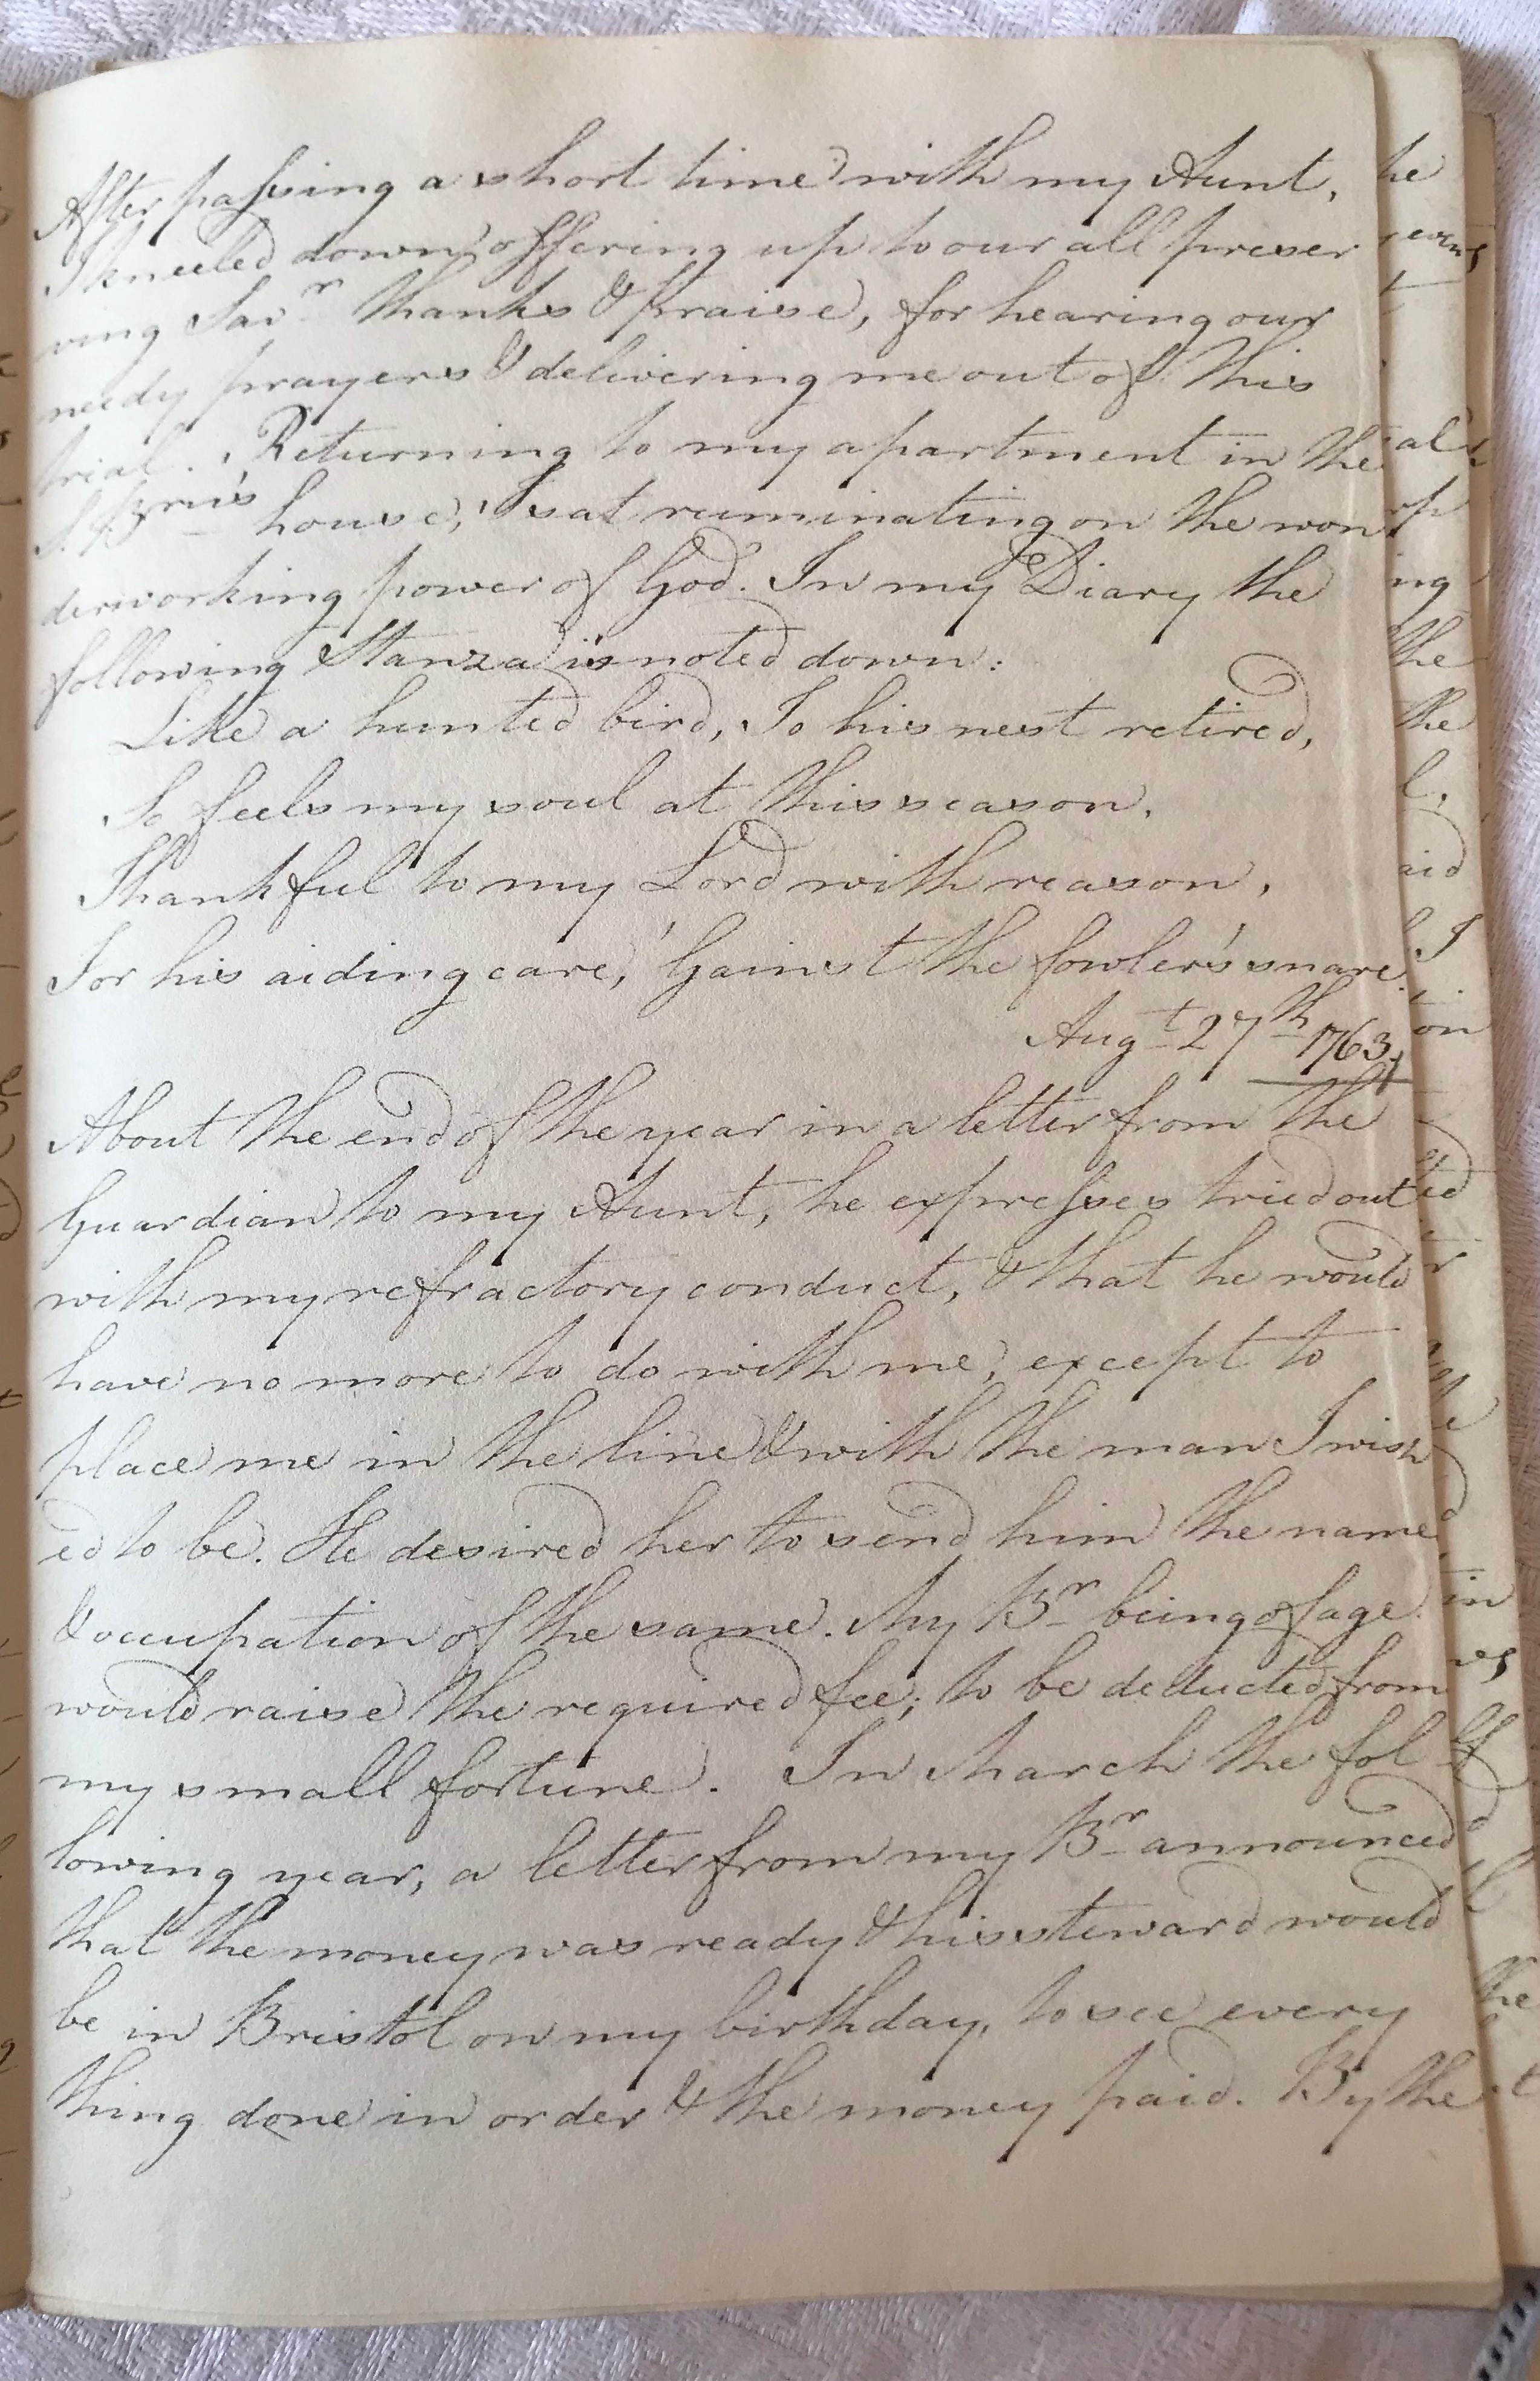 After passing a short time with my Aunt,
I kneeled down offering up to our all preser
ving Savr. thanks & praise, for hearing our
needy prayers & delivering me out of this
trial. Returning to my apartment in the
S. Brns house, I sat ruminating on the won
derworking power of God. In my Diary the
following Stanza is noted down:
Like a hunted bird, To his nest retired,
So feels my soul at this season.
Thankful to my Lord with reason,
For his aiding care, 'Gainst the fowler's snare.
Augt. 27th 1763.
About the end of the year in a letter from the
Guardian to my Aunt, he expresses tried out
with my refractory conduct, & that he would
have no more to do with me, except to
place me in the line & with the man I wish
ed to be. He desired her to send him the name
& occupation of the same. My Br. being of age
would raise the required fee; to be deducted from
my small fortune. In March the fol
lowing year, a letter from my Br. announced
that the money was ready & his steward would
be in Bristol on my birthday, to see every
thing done in order & the money paid. By the